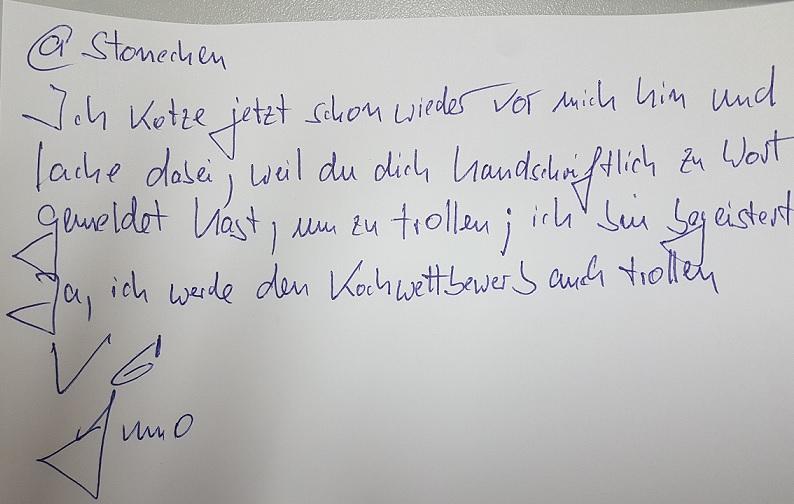 @ Stonechen
Ich kotze jetzt schon wieder vor mich hin und
lache dabei, weil du dich handschriftlich zu Wort
gemeldet hast, um zu trollen; ich bin begeistert
Ja, ich werde den Kochwettbewerb auch trollen
V G
Juno